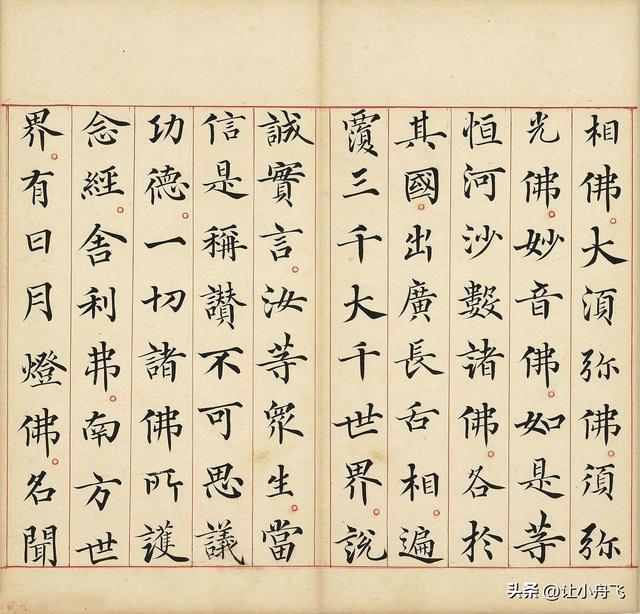 相佛大須弥佛須弥
光佛妙音佛如是等
恒河沙數諸佛各於
其國出廣長舌相遍
覆三千大千世界說
誠實言汝等眾生當
信是稱讚不可思議
功德一切諸佛所護
念經舍利弗南方世
界有日月燈佛名聞
头条 @让小舟飞